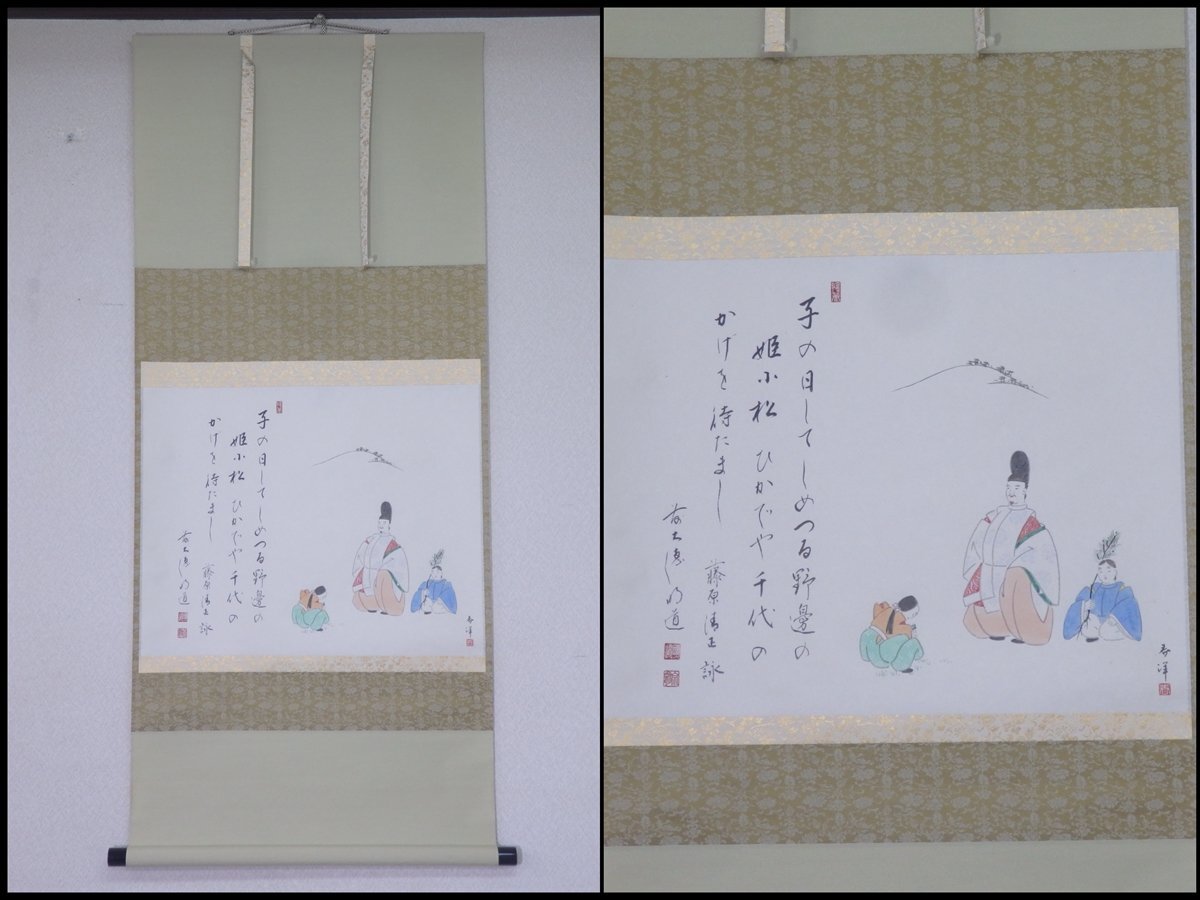 子の日してしめつる野邊の
姫小松 ひかでや千代の
かげを待たまし
藤原清正詠
前大徳明道
子の日してしめつる野邊の
姫小松 ひかでや千代の
かげを待たまし
藤原清正詠
前大徳明道